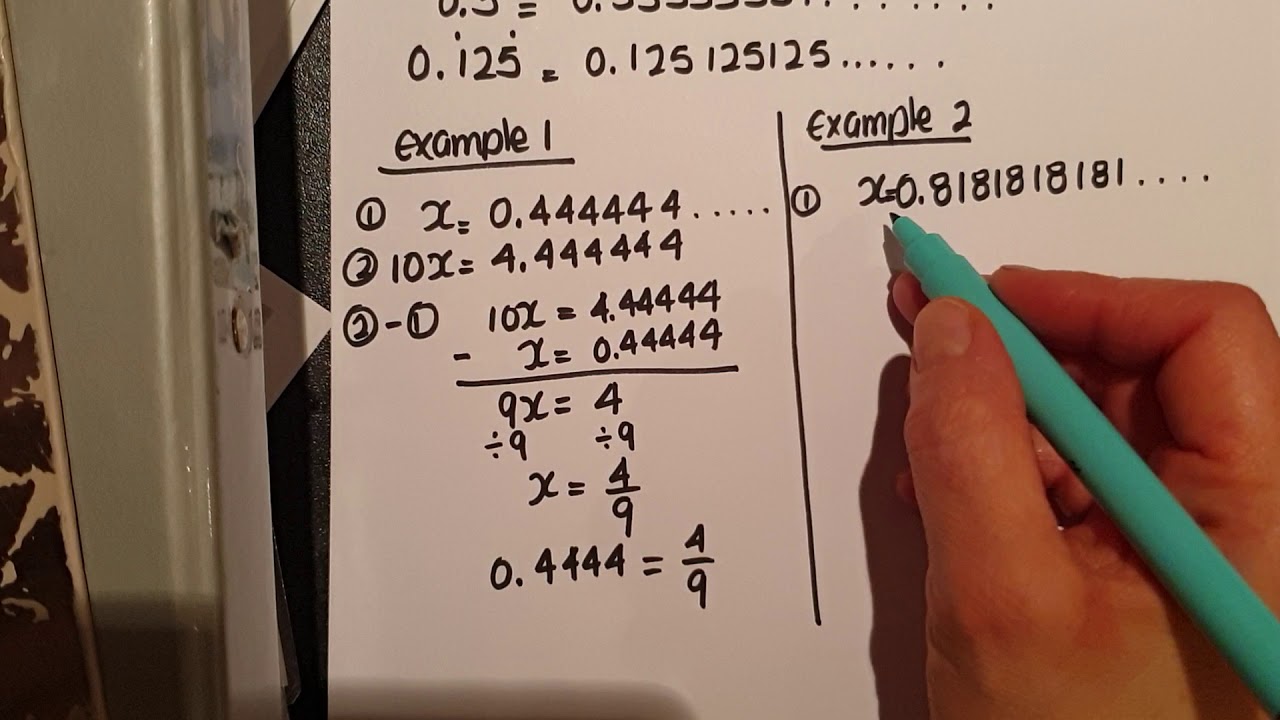 0.5 =
0.1̇25̇ = 0.125125125......
example 1
① x = 0.444444.....
② 10x = 4.444444
② - ① 10x = 4.44444
- x = 0.44444
9x = 4
÷9 ÷9
x = 4/9
0.4444 = 4/9
Example 2
① x=0.8181818181....